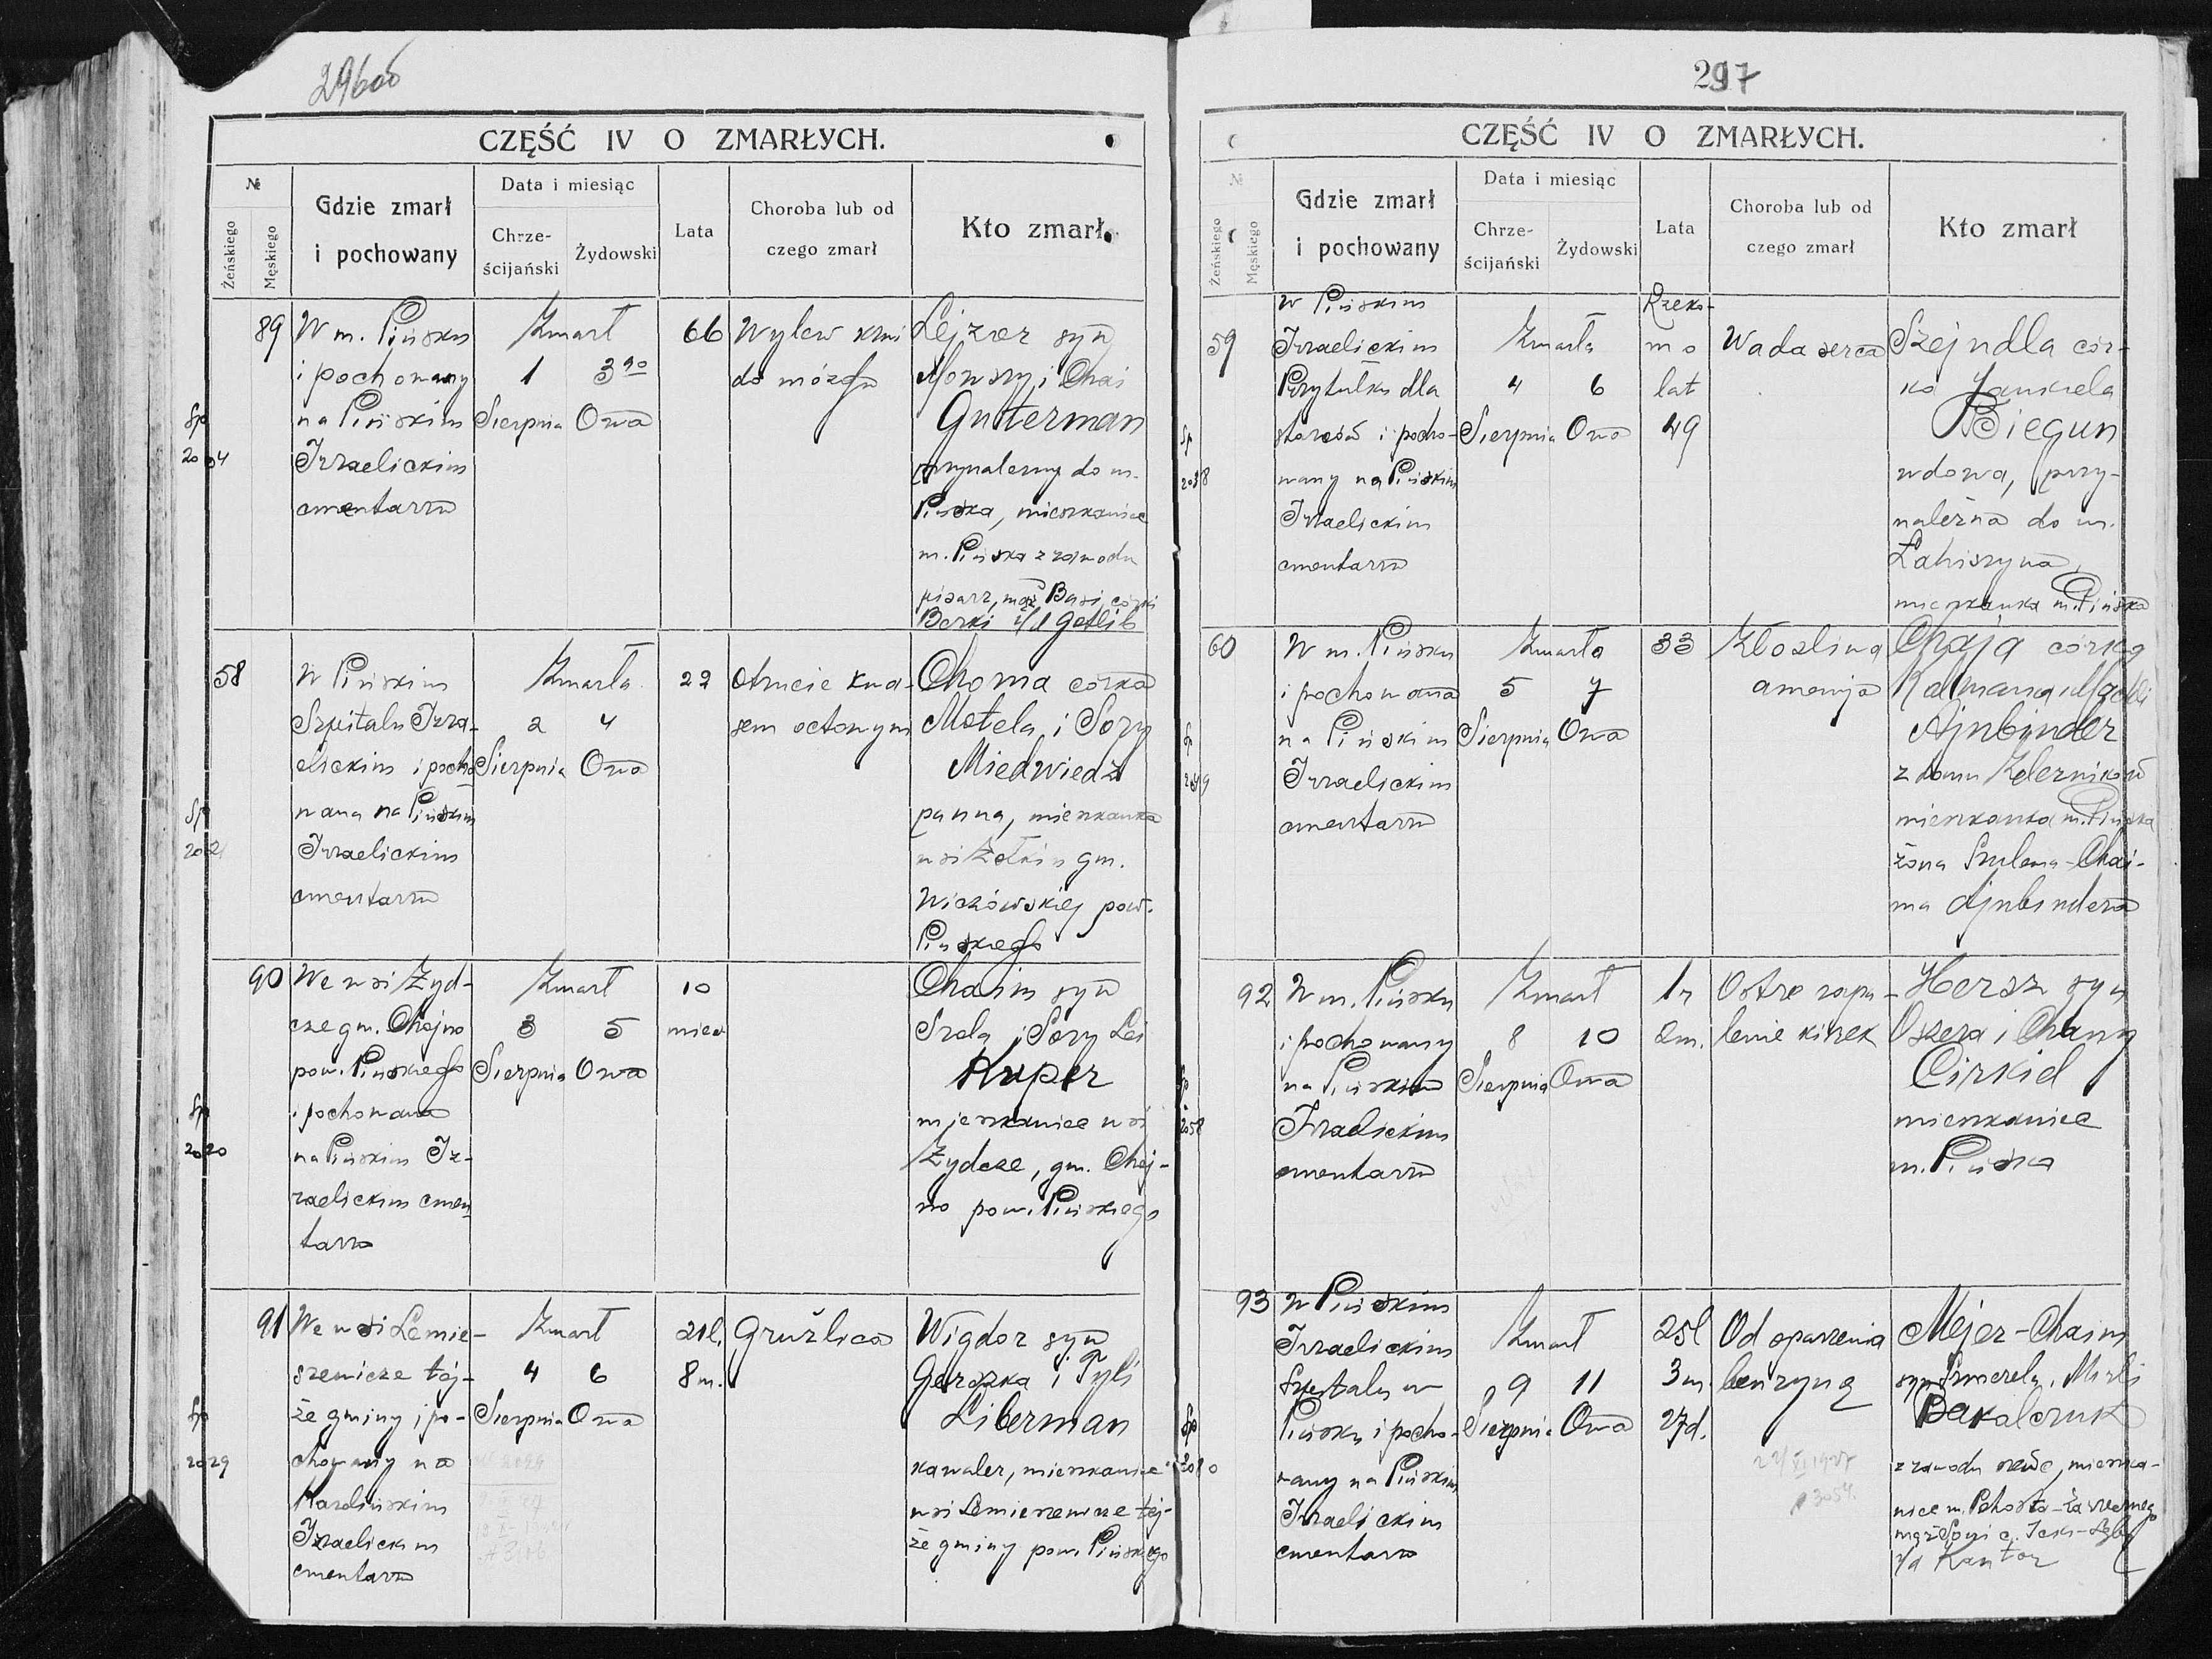 296об
CZĘŚĆ IV O ZMARŁYCH.
№
Żeńskiego
Męskiego
Gdzie zmarł
i pochowany
Data i miesiąc
Chrze-
ścijański
Żydowski
Lata
Choroba lub od
czego zmarł
Kto zmarł
89
W m. Pińsku
i pochowany
na Pińskim
Izraelickim
cmentarzu
Zmarł
1 3go
Sierpnia Owa
66
Wylew krwi
do mózgu
Lejzer syn
Mowszy i Chai
Guterman
przynależny do m.
Pińska, mieszkaniec
m. Pińska z zawodu
pisarz, mąż Basi córki
Berki z/d Gotlib
58
W Pińskim
Szpitalu Izra-
elickim i pocho
wana na Pińskim
Izraelickim
cmentarzu
Zmarła
2 4
Sierpnia Owa
22
Otrucie kwa-
sem octowym
Choma córka
Motela i Sory
Miedwiedź
panna, mieszkanka
wsi Żołkin gm.
Wiczówskiej pow.
Pińskiego
90
We wsi Żyd-
cze gm. Chojno
pow. Pińskiego
i pochowana
na Pińskim Iz-
raelickim cmen
tarzu
Zmarł
3 5
Sierpnia Owa
10
mies
Chaim syn
Srola i Sory Lei
Kuper
mieszkaniec wsi
Żydcze, gm. Choj-
no pow. Pińskiego
91
We wsi Lemie-
szewicze tej-
że gminy i po-
chowany na
Karolińskim
Izraelickim
cmentarzu
Zmarł
4 6
Sierpnia Owa
21l.
8m.
Gruźlica
Wigdor syn
Gerszka i Tyli
Liberman
kawaler, mieszkaniec
wsi Lemieszewicze tej-
że gminy pow. Pińskiego
297
CZĘŚĆ IV O ZMARŁYCH.
№
Żeńskiego
Męskiego
Gdzie zmarł
i pochowany
Data i miesiąc
Chrze-
ścijański
Żydowski
Lata
Choroba lub od
czego zmarł
Kto zmarł
59
W Pińskim
Izraelickim
Przytułku dla
starców i pocho-
wany na Pińskim
Izraelickim
cmentarzu
Zmarła
4 6
Sierpnia Owa
Rzeko-
mo
lat
49
Wada serca
Szejndla cór-
ka Jankiela
Biegun
wdowa, przy-
należna do m.
Łahiszyna,
mieszkanka m. Pińska
60
W m. Pińsku
i pochowana
na Pińskim
Izraelickim
cmentarzu
Zmarła
5 7
Sierpnia Owa
33
Złośliwa
anemja
Chaja córka
Kalmana
Ajnbinder
z domu
mieszkanka m. Pińska
żona Szulema-Chai-
ma Ajnbindera
92
W m. Pińsku
i pochowany
na Pińskim
Izraelickim
cmentarzu
Zmarł
8 10
Sierpnia Owa
1r
2m.
Ostre zapa-
lenie kiszek
Hersz syn
Oszera i Chany
Cirkiel
mieszkaniec
m. Pińska
93
W Pińskim
Izraelickim
Szpitalu w
Pińsku i pocho-
wany na Pińskim
Izraelickim
cmentarzu
Zmarł
9 11
Sierpnia Owa
25l
3m.
27d.
Od oparzenia
benzyną
Mejer-Chaim
syn Szmerela i Mirli
Bakalczuk
z zawodu szewc, mieszka-
niec m. Pohosta-Zarzecznego
mąż Soni c.
z/d Kantor